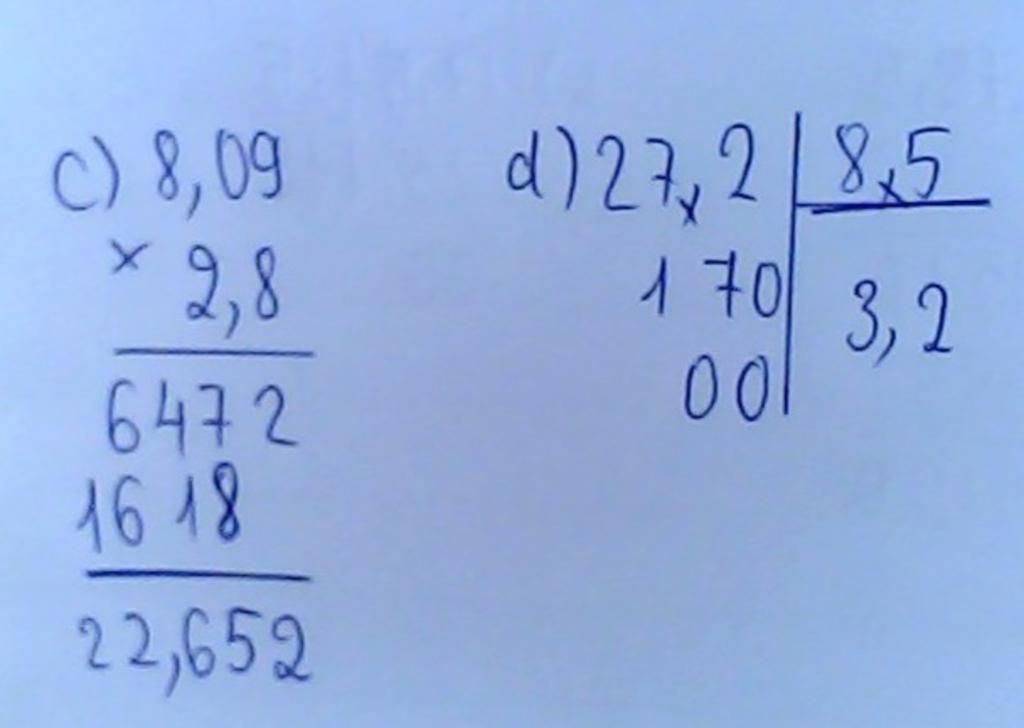 c) 8,09
× 2,8
6472
1618
22,652
d) 27,2 | 8,5
170
3,2
00